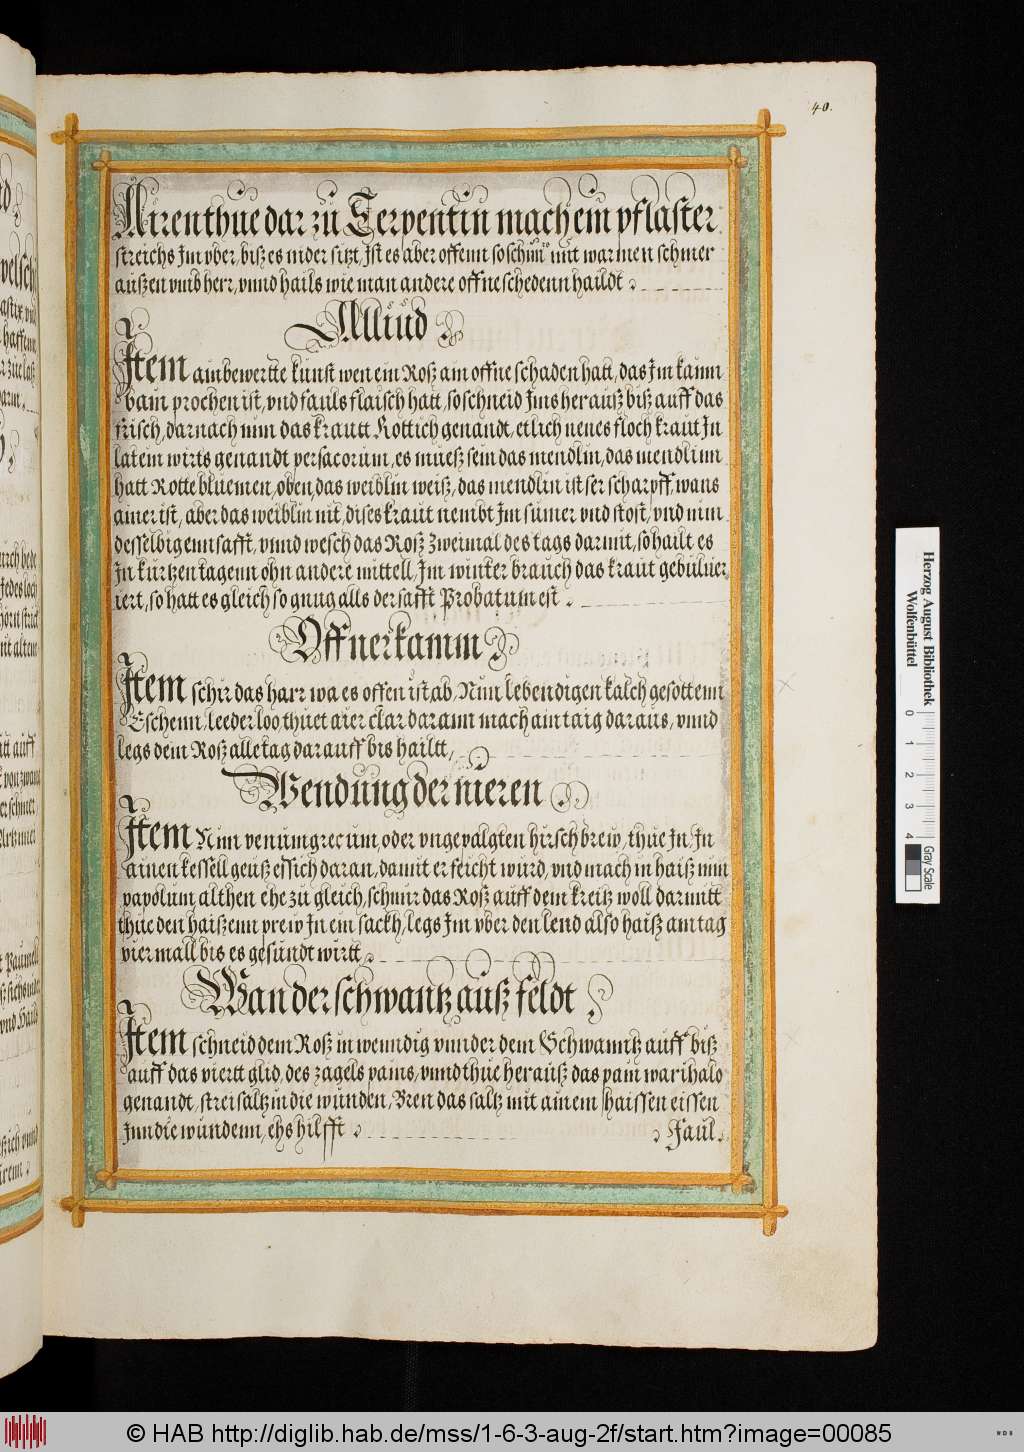 40.
Airen thue dar zu Terpentin mach ein pflaster
streichs Im vber, biß es nider sizt, Ist es aber offenn so mit warmen schmer
außen vmb herr, vnnd hails wie man andere offne schedenn haildt
Allind
Item ain bewertte kunst wen ein Roß ain offne schaden hatt, das Im kamm
bain prochen ist, vnd fauls flaisch hatt, so schneid Ims herauß biß auff das
frisch, darnach nim das krautt Rottich genandt, etlich nenes floch kraut In
latein wirts genandt persacorum, es mueß sein das mendlin, das mendlinn
hatt Rotte bluemen, oben, das weiblin weiß, das mendlin ist ser scharpff, wans
ainer ist, aber das weiblin nit, dises kraut nembt Im sumer vnd stost, vnd nim
desselbigenn safft, vnnd wesch das Roß Zweimal des tags darmit, so hailt es
In kurtzen tagenn ohn andere mittell, Im winter brauch das kraut gebuluer
iert, so hatt es gleich so gnug alls der safft Probatum est
Offner kamm
Item schir das harr wa es offen ist, ab, Nim lebendigen kalch gesottenn
Eschenn, leeder loo thuet aier clar darann mach ain taig daraus, vnnd
legs dem Roß alle tag darauff bis hailtt,
Wendung der nieren
Item Nim venumgrecum, oder vngevalgten hirsch brew, thue In, In
ainen kessell geuß essich daran, damit er feicht wurd, vnd mach in haiß nim
papolum althen ehe zu gleich, schmir das Roß auff dem kreitz woll darmitt
thue den haißenn prew In ein sackh, legs Im vber den lend also haiß am tag
vier mall bis es gesundt wirtt
Wan der schwantz auß feldt
Item schneid dem Roß in wenndig vnnder dem Schwanntz auff biß
auff das viertt glid, des zagels pains, vnnd thue herauß das pain
genandt, strei saltz in die wunden, Bren das saltz mit ainem haissen eissen
Inn die wundenn, ehs hilfft
Faul
Herzog August Bibliothek
Wolfenbüttel
0 1 2 3 4
Gray Scale
© HAB http://diglib.hab.de/mss/1-6-3-aug-2f/start.htm?image=00085